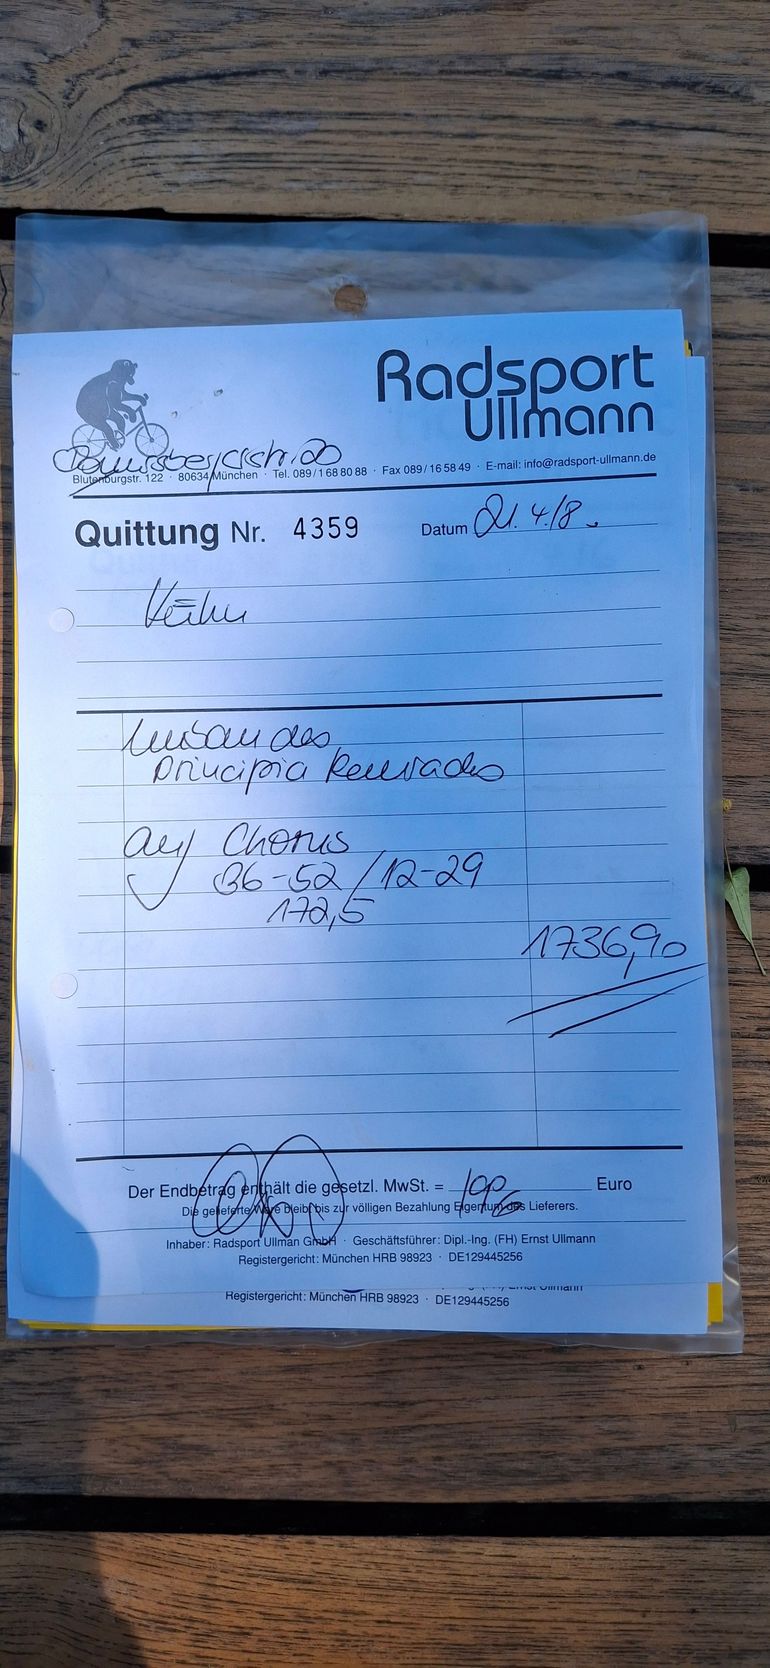 Radsport
Ullmann
Blutenburgstr. 122 · 80634 München · Tel. 089/1 68 80 88 · Fax 089/16 58 49 · E-mail: info@radsport-ullmann.de
Quittung Nr. 4359 Datum 21.4.18
Umbau des
Principia Rennrades
auf Chorus
36-52/12-29
172,5
1736,90
Der Endbetrag enthält die gesetzl. MwSt. = 19% Euro
Die gelieferte Ware bleibt bis zur völligen Bezahlung Eigentum des Lieferers.
Inhaber: Radsport Ullman GmbH · Geschäftsführer: Dipl.-Ing. (FH) Ernst Ullmann
Registergericht: München HRB 98923 · DE129445256
Registergericht: München HRB 98923 · DE129445256